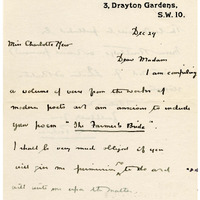 3, Drayton Gardens,
S.W. 10.
Dec 29
Miss Charlotte Mew
Dear Madam
I am compiling
a volume of verse from the works of
modern poets and am anxious to include
your poem "The Farmer's Bride"
I shall be very much obliged if you
will give me permission to do and